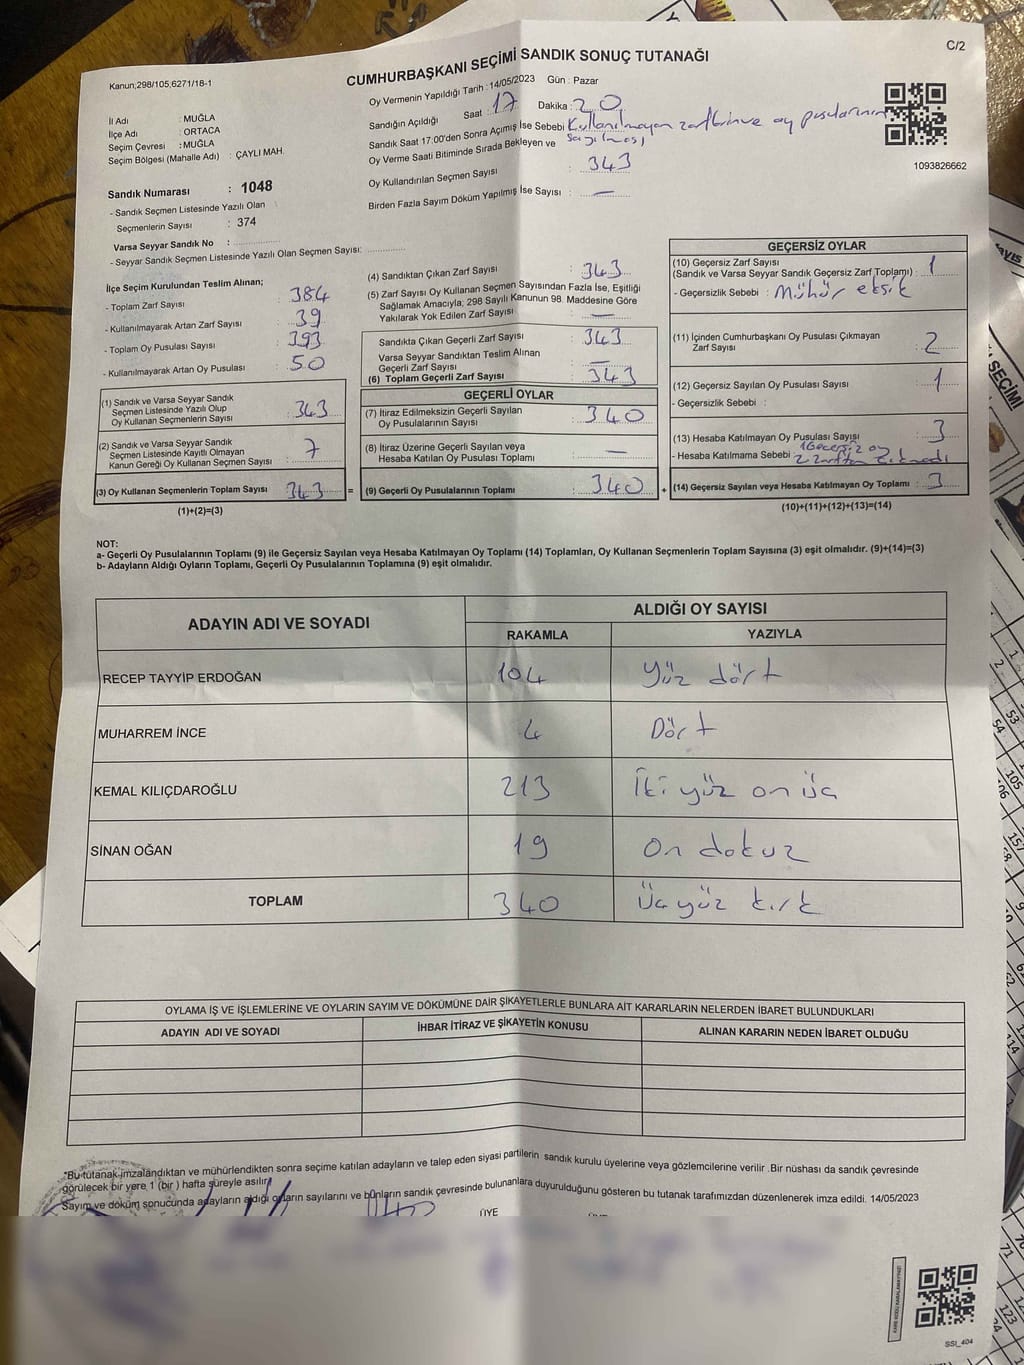 C/2
CUMHURBAŞKANI SEÇİMİ SANDIK SONUÇ TUTANAĞI
Kanun;298/105;6271/18-1
Oy Vermenin Yapıldığı Tarih : 14/05/2023 Gün : Pazar
İl Adı : MUĞLA
İlçe Adı : ORTACA
Seçim Çevresi : MUĞLA
Seçim Bölgesi (Mahalle Adı) : ÇAYLI MAH.
Sandığın Açıldığı Saat : 17 Dakika : 20
Sandık Saat 17:00'den Sonra Açımış İse Sebebi Kullanılmayan zarfların ve oy pusularının
Sayılması
Oy Verme Saati Bitiminde Sırada Bekleyen ve
Oy Kullandırılan Seçmen Sayısı : 343
Birden Fazla Sayım Döküm Yapılmış İse Sayısı : —
1093826662
Sandık Numarası : 1048
- Sandık Seçmen Listesinde Yazılı Olan
Seçmenlerin Sayısı : 374
Varsa Seyyar Sandık No :
- Seyyar Sandık Seçmen Listesinde Yazılı Olan Seçmen Sayısı:
İlçe Seçim Kurulundan Teslim Alınan;
- Toplam Zarf Sayısı : 384
- Kullanılmayarak Artan Zarf Sayısı : 39
- Toplam Oy Pusulası Sayısı : 393
- Kullanılmayarak Artan Oy Pusulası : 50
(1) Sandık ve Varsa Seyyar Sandık
Seçmen Listesinde Yazılı Olup
Oy Kullanan Seçmenlerin Sayısı : 343
(2) Sandık ve Varsa Seyyar Sandık
Seçmen Listesinde Kayıtlı Olmayan
Kanun Gereği Oy Kullanan Seçmen Sayısı : 7
(3) Oy Kullanan Seçmenlerin Toplam Sayısı : 343 =
(1)+(2)=(3)
(4) Sandıktan Çıkan Zarf Sayısı : 343
(5) Zarf Sayısı Oy Kullanan Seçmen Sayısından Fazla İse, Eşitliği
Sağlamak Amacıyla; 298 Sayılı Kanunun 98. Maddesine Göre
Yakılarak Yok Edilen Zarf Sayısı : —
Sandıkta Çıkan Geçerli Zarf Sayısı : 343
Varsa Seyyar Sandıktan Teslim Alınan
Geçerli Zarf Sayısı : —
(6) Toplam Geçerli Zarf Sayısı : 343
GEÇERLİ OYLAR
(7) İtiraz Edilmeksizin Geçerli Sayılan
Oy Pusulalarının Sayısı : 340
(8) İtiraz Üzerine Geçerli Sayılan veya
Hesaba Katılan Oy Pusulası Toplamı : —
(9) Geçerli Oy Pusulalarının Toplamı : 340 +
GEÇERSİZ OYLAR
(10) Geçersiz Zarf Sayısı
(Sandık ve Varsa Seyyar Sandık Geçersiz Zarf Toplamı) : 1
- Geçersizlik Sebebi : Mühür eksik
(11) İçinden Cumhurbaşkanı Oy Pusulası Çıkmayan
Zarf Sayısı : 2
(12) Geçersiz Sayılan Oy Pusulası Sayısı : 1
- Geçersizlik Sebebi :
(13) Hesaba Katılmayan Oy Pusulası Sayısı : 3
- Hesaba Katılmama Sebebi : 1 Geçersiz oy
2 zarftan çıkmadı
(14) Geçersiz Sayılan veya Hesaba Katılmayan Oy Toplamı : 3
(10)+(11)+(12)+(13)=(14)
NOT:
a- Geçerli Oy Pusulalarının Toplamı (9) ile Geçersiz Sayılan veya Hesaba Katılmayan Oy Toplamı (14) Toplamları, Oy Kullanan Seçmenlerin Toplam Sayısına (3) eşit olmalıdır. (9)+(14)=(3)
b- Adayların Aldığı Oyların Toplamı, Geçerli Oy Pusulalarının Toplamına (9) eşit olmalıdır.
ADAYIN ADI VE SOYADI ALDIĞI OY SAYISI
RAKAMLA YAZIYLA
RECEP TAYYİP ERDOĞAN 104 Yüz dört
MUHARREM İNCE 4 Dört
KEMAL KILIÇDAROĞLU 213 İki yüz on üç
SİNAN OĞAN 19 On dokuz
TOPLAM 340 Üç yüz kırk
OYLAMA İŞ VE İŞLEMLERİNE VE OYLARIN SAYIM VE DÖKÜMÜNE DAİR ŞİKAYETLERLE BUNLARA AİT KARARLARIN NELERDEN İBARET BULUNDUKLARI
ADAYIN ADI VE SOYADI İHBAR İTİRAZ VE ŞİKAYETİN KONUSU ALINAN KARARIN NEDEN İBARET OLDUĞU
*Bu tutanak imzalandıktan ve mühürlendikten sonra seçime katılan adayların ve talep eden siyasi partilerin sandık kurulu üyelerine veya gözlemcilerine verilir .Bir nüshası da sandık çevresinde
görülecek bir yere 1 (bir ) hafta süreyle asılır.
Sayım ve döküm sonucunda adayların aldığı oyların sayılarını ve bunların sandık çevresinde bulunanlara duyurulduğunu gösteren bu tutanak tarafımızdan düzenlenerek imza edildi. 14/05/2023
ÜYE
SSI_404